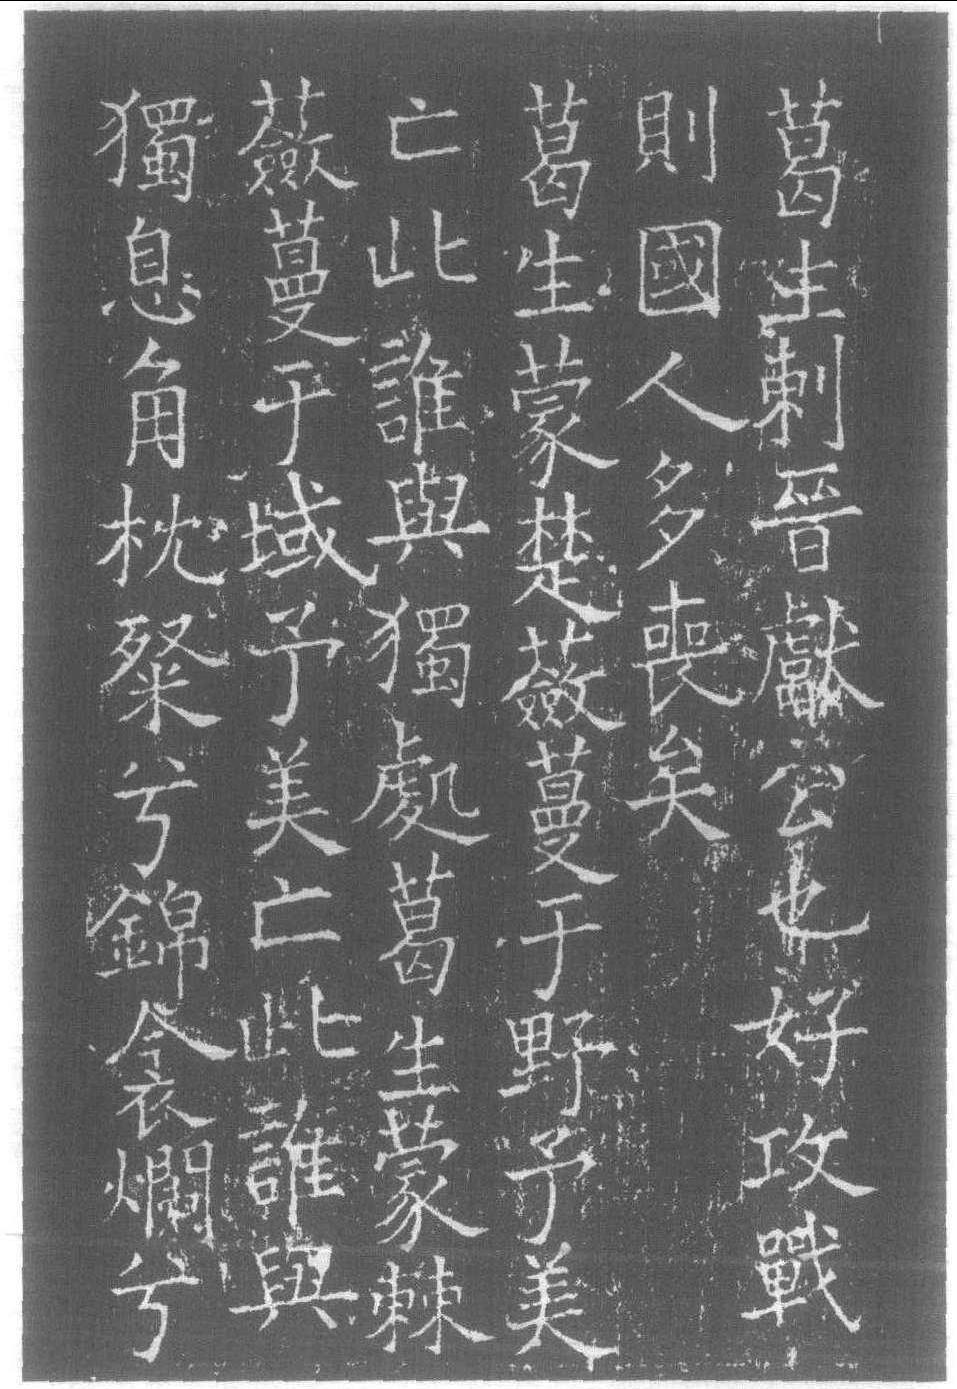 葛生刺晉獻公也好攻戰
則國人多喪矣
葛生蒙楚蘞蔓于野予美
亡此誰與獨處葛生蒙棘
蘞蔓于域予美亡此誰與
獨息角枕粲兮錦衾爛兮